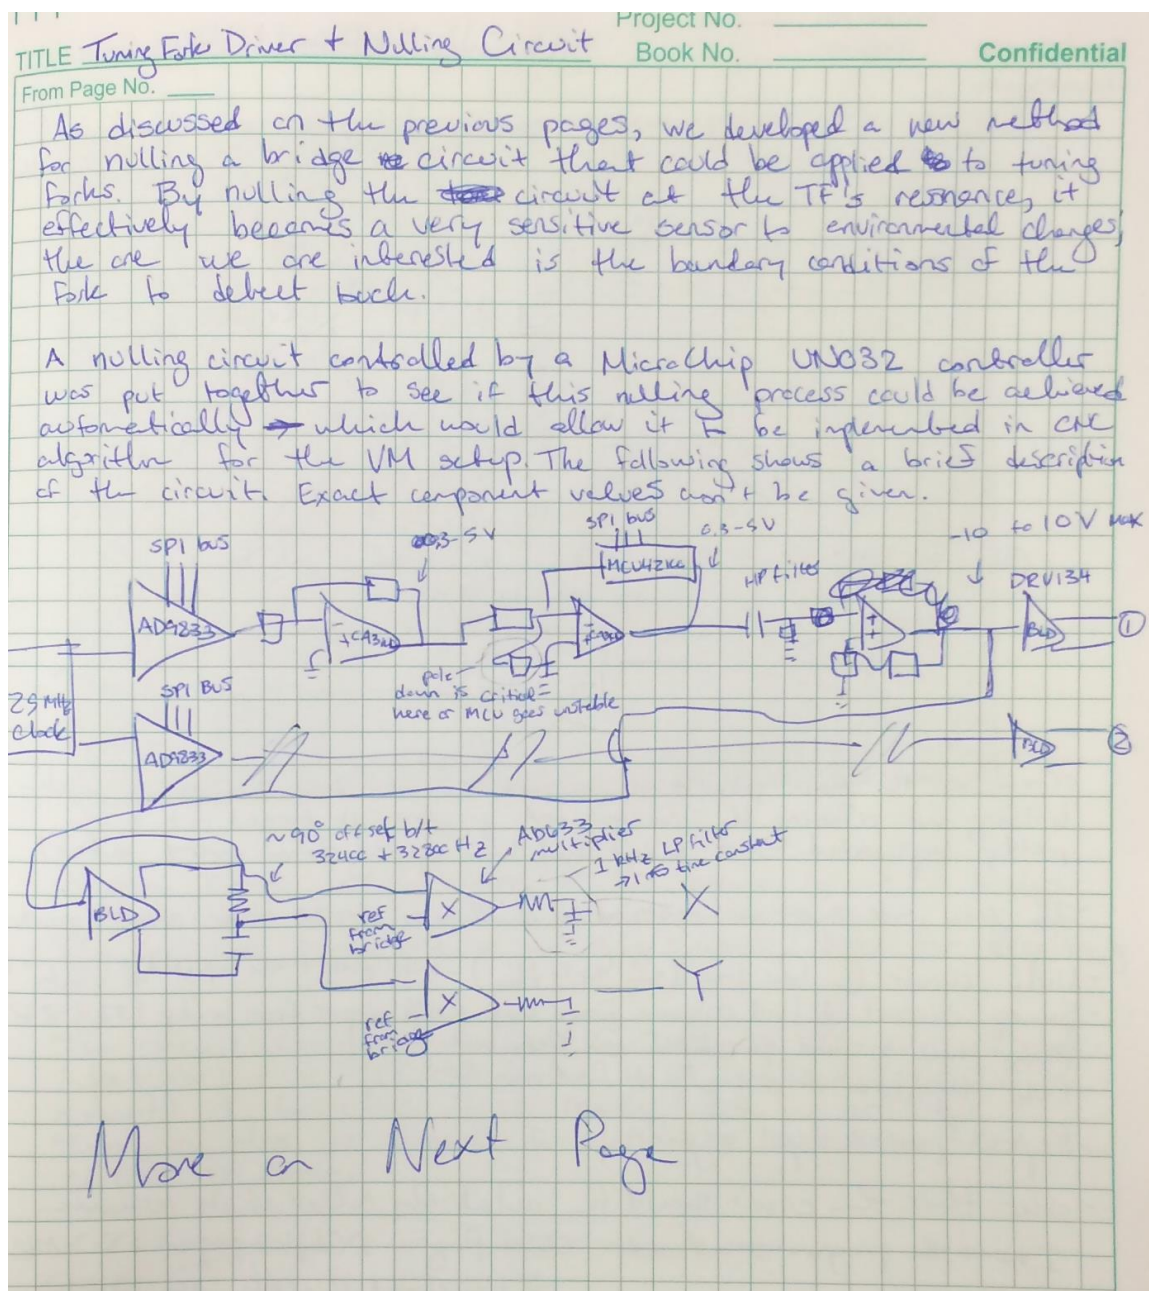 Project No.
TITLE Tuning Fork Driver + Nulling Circuit
Book No.
Confidential
From Page No.
As discussed on the previous pages, we developed a new method
for nulling a bridge circuit that could be applied to to tuning
forks. By nulling the circuit at the TF's resonance, it
effectively becomes a very sensitive sensor to environmental changes,
the one we are interested is the boundary conditions of the
fork to detect touch.
A nulling circuit controlled by a MicroChip UNO32 controller
was put together to see if this nulling process could be achieved
automatically which would allow it to be implemented in CNC
algorithm for the VM setup. The following shows a brief description
of the circuit. Exact component values won't be given.
SPI bus
0.3-5V
SPI bus
0.3-5V
-10 to 10V max
AD9833
CA3140
MCU42100
HP filter
DRV134
BLD
1
pole
down is critical
here or MCU goes unstable
25 MHz
Clock
SPI BUS
AD9833
BLD
2
~90° offset b/t
32400 + 32800 Hz
AD633
multiplier
1 kHz LP filter
BLD
X
ref
from
bridge
X
X
ref
from
bridge
Y
More on Next Page